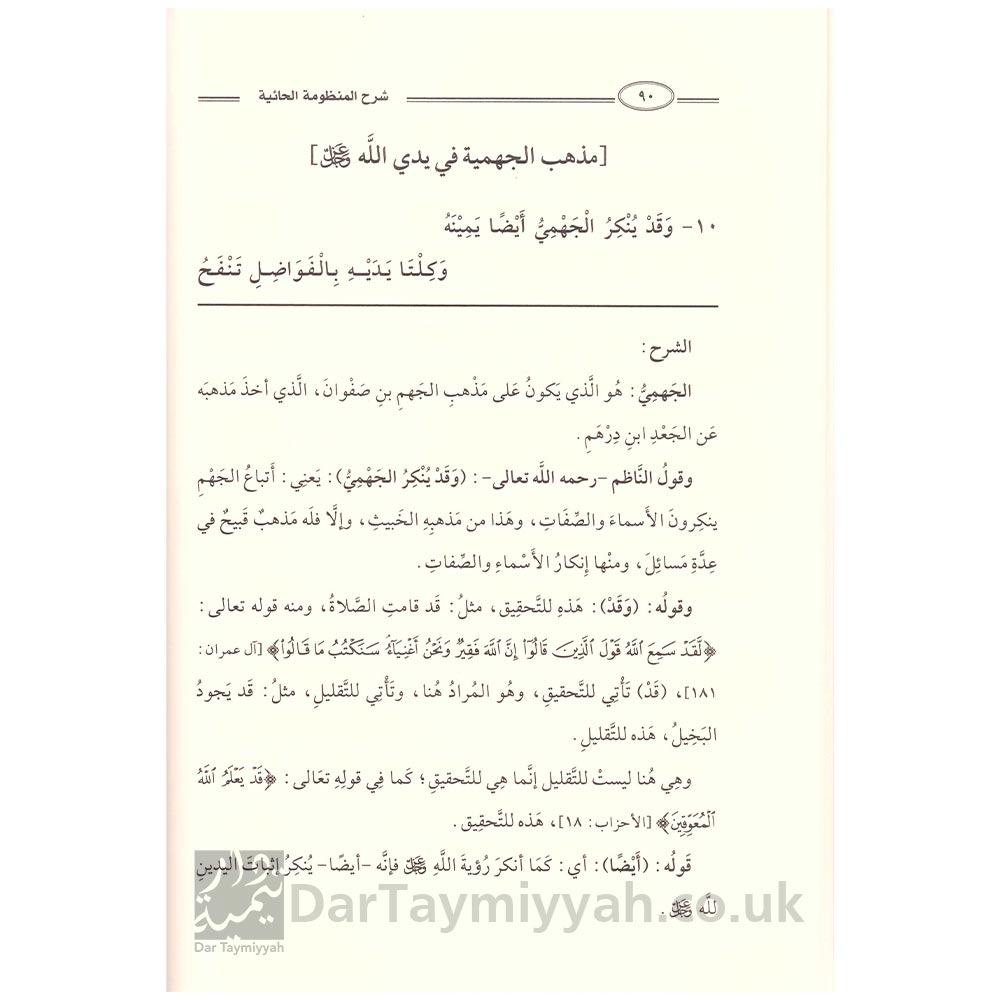 ٩٠ شرح المنظومة الحائية
[مذهب الجهمية في يدي اللَّه عَزَّ وَجَلَّ]
١٠- وَقَدْ يُنْكِرُ الْجَهْمِيُّ أَيْضًا يَمِيْنَهُ
وَكِلْتَا يَدَيْهِ بِالْفَوَاضِلِ تَنْفَحُ
الشرح:
الجَهمِيُّ: هُو الَّذي يَكونُ عَلى مَذْهبِ الجَهمِ بنِ صَفْوانَ، الَّذي أخذَ مَذهبَه
عَن الجَعْدِ ابنِ دِرْهَمِ.
وقولُ النَّاظم -رحمه اللَّه تعالى-: (وَقَدْ يُنْكِرُ الجَهْمِيُّ): يَعنِي: أَتباعُ الجَهْمِ
ينكِرونَ الأَسماءَ والصِّفَاتِ، وهَذا من مَذهبِهِ الخَبيثِ، وإلَّا فلَه مَذهبٌ قَبيحٌ في
عِدَّةِ مَسائِلَ، ومنْها إِنكارُ الأَسْماءِ والصِّفاتِ.
وقولُه: (وَقَدْ): هَذهِ للتَّحقيق، مثلُ: قَد قامتِ الصَّلاةُ، ومنه قوله تعالى:
﴿لَّقَدْ سَمِعَ ٱللَّهُ قَوْلَ ٱلَّذِينَ قَالُوٓا۟ إِنَّ ٱللَّهَ فَقِيرٌ وَنَحْنُ أَغْنِيَآءُ سَنَكْتُبُ مَا قَالُوا۟﴾ [آل عمران:
١٨١]، (قَدْ) تَأْتِي للتَّحقيقِ، وهُو المُرادُ هُنا، وتَأْتِي للتَّقليلِ، مثلُ: قَد يَجودُ
البَخِيلُ، هَذه للتَّقليلِ.
وهِي هُنا ليستْ للتَّقليل إنَّما هِي للتَّحقيقِ؛ كَما فِي قولِهِ تعَالى: ﴿قَدْ يَعْلَمُ ٱللَّهُ
ٱلْمُعَوِّقِينَ﴾ [الأحزاب: ١٨]، هَذه للتَّحقِيق.
قَولُه: (أَيْضًا): أي: كَمَا أنكرَ رُؤيةَ اللَّهِ عَزَّ وَجَلَّ فإنَّه -أيضًا- يُنكِرُ إثباتَ اليدينِ
للَّه عَزَّ وَجَلَّ.
دار تيمية
Dar Taymiyyah
DarTaymiyyah.co.uk